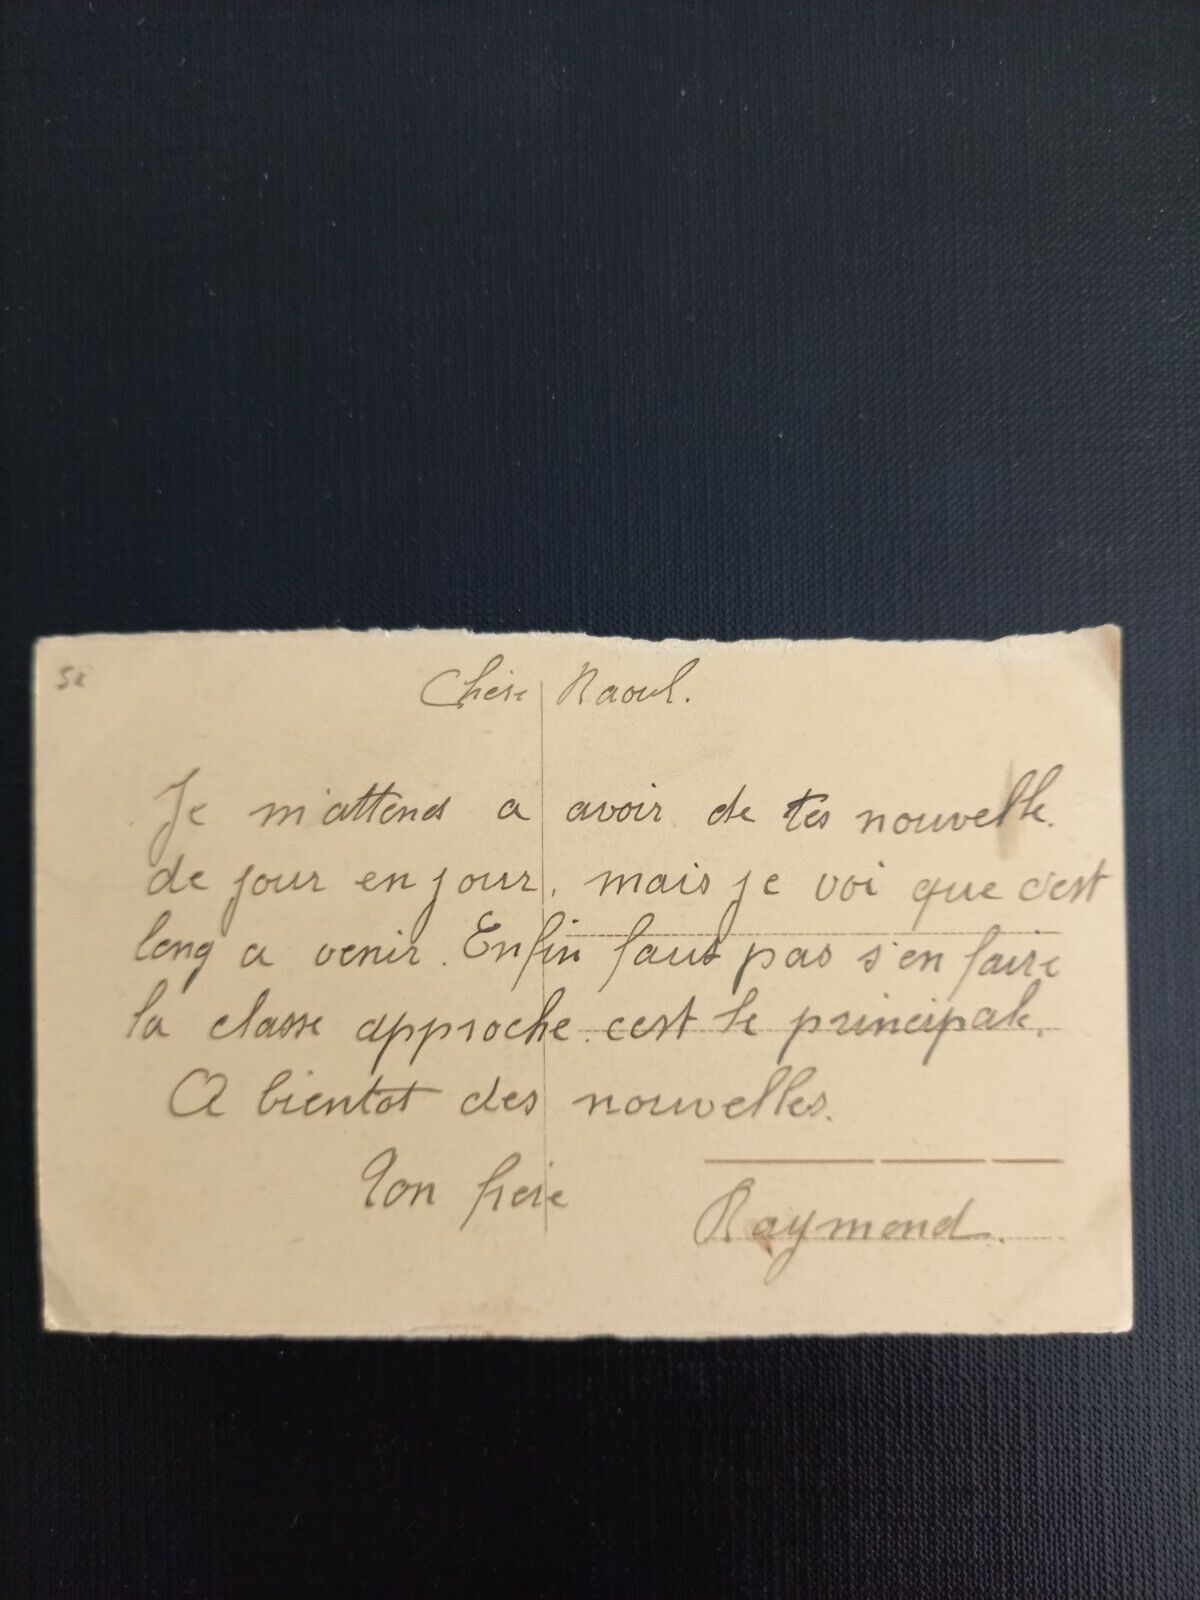 Chère Raoul.
Je m'attend a avoir de tes nouvelle.
de jour en jour, mais je voi que c'est
long a venir. Enfin faut pas s'en faire
la classe approche c'est le principale.
A bientot des nouvelles.
Ton frère
Raymond.